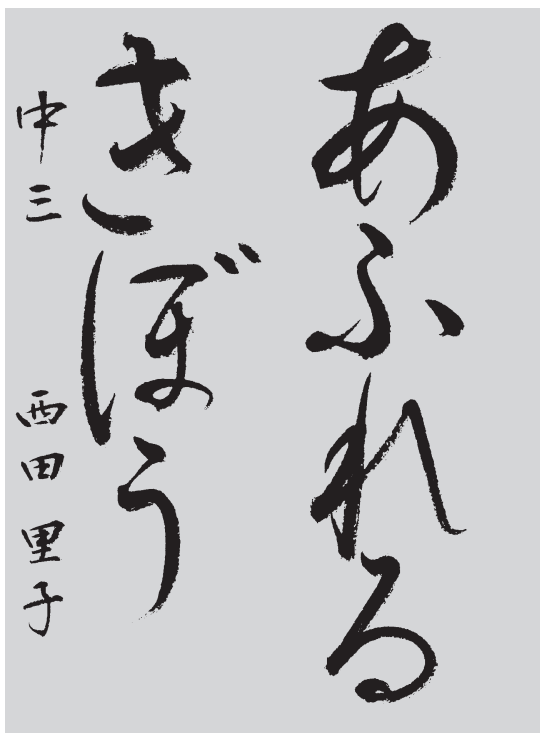 あふれる
きぼう
中三 西田里子